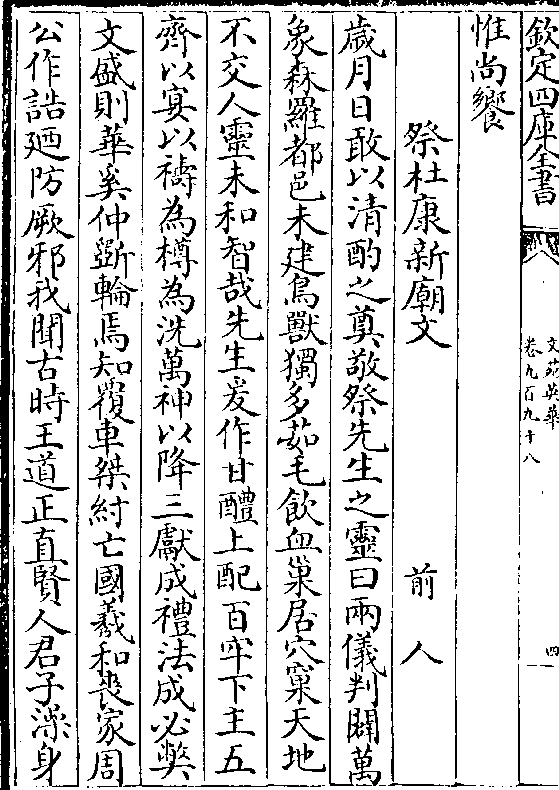 欽定四庫全書
文苑英華
卷九百九十八
四
惟尚饗
祭杜康新廟文 前人
歳月日敢以清酌之奠敬祭先生之靈曰兩儀判闢萬
象森羅都邑未建鳥獸獨多茹毛飲血巢居穴窠天地
不交人靈未和智哉先生爰作甘醴上配百牢下主五
齊以宴以禱為樽為洗萬神以降三獻成禮法成必弊
文盛則華奚仲斵輪焉知覆車桀紂亡國羲和喪家周
公作誥廼防厥邪我聞古時王道正直賢人君子澡身